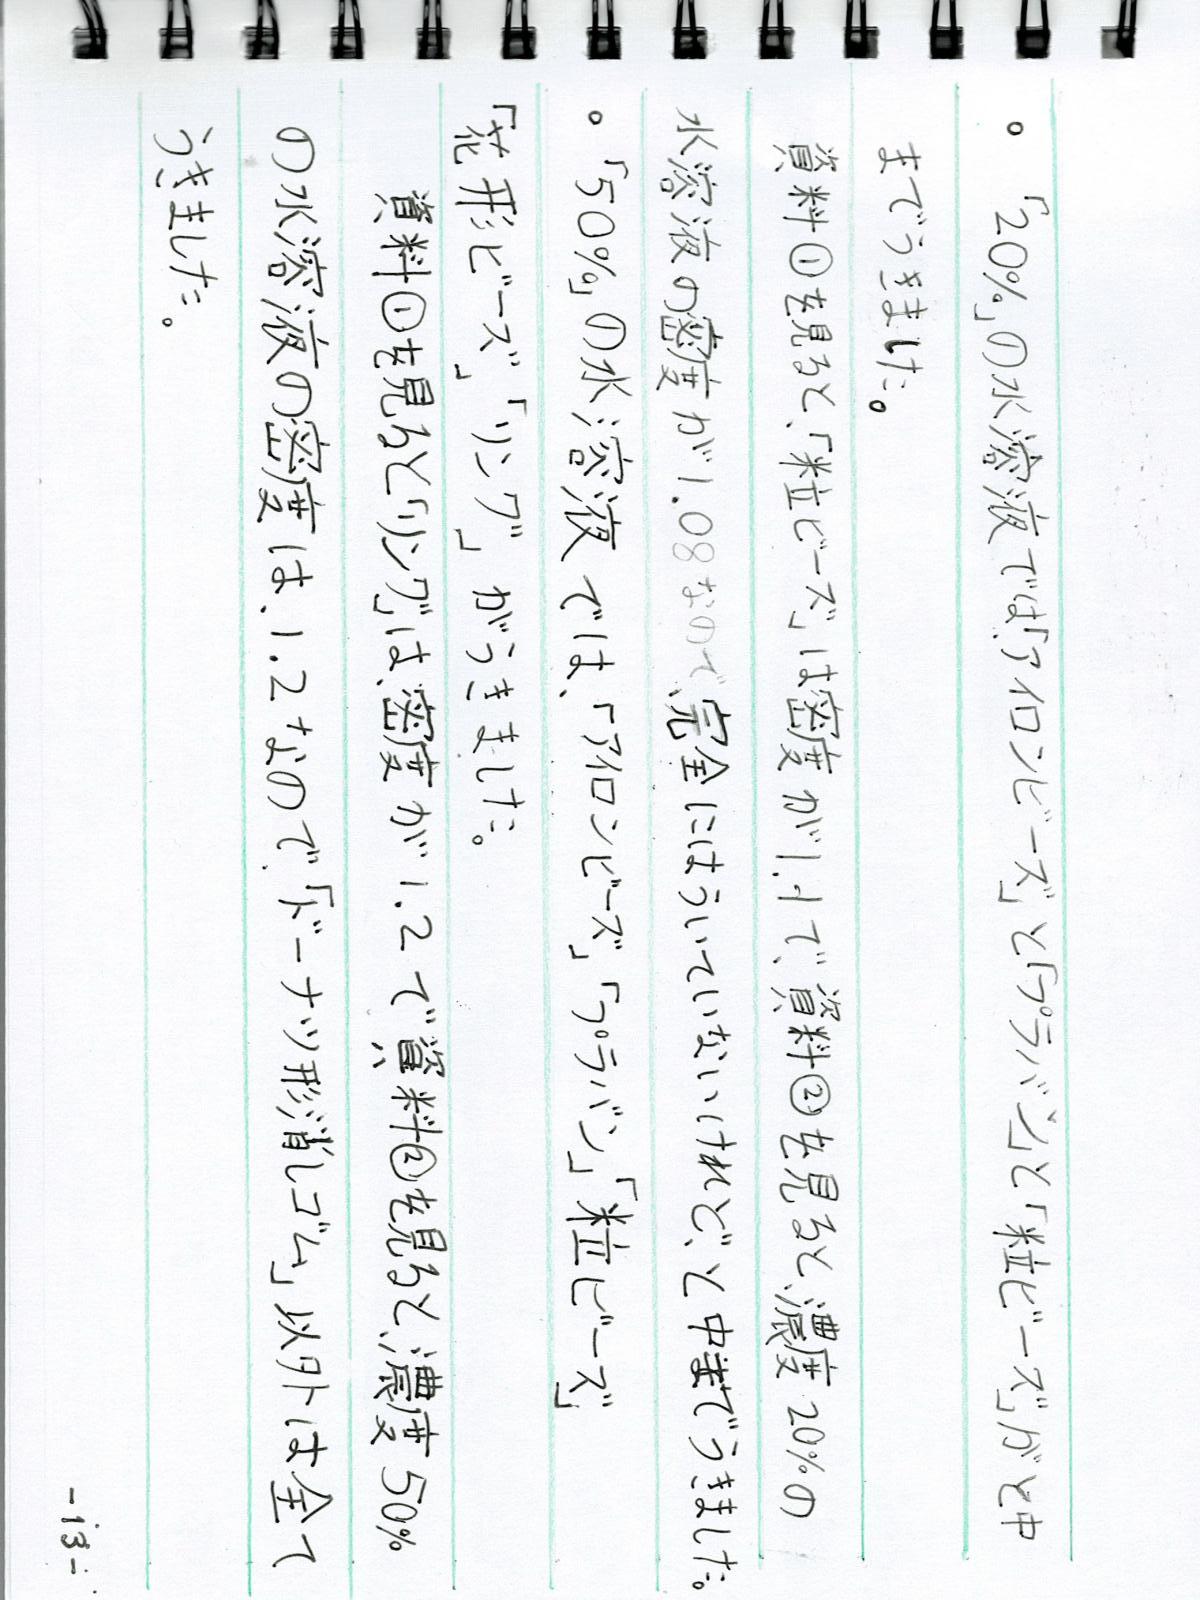 。「20%」の水溶液では「アイロンビーズ」と「プラバン」と「粒ビーズ」がと中
まででうきました。
資料①を見ると、「粒ビーズ」は密度が1.1で、資料②を見ると、濃度20%の
水溶液の密度が1.08なので、完全にはういていないけれど、と中まででうきました。
。「50%」の水溶液では、「アイロンビーズ」「プラバン」「粒ビーズ」
「花形ビーズ」「リング」がうきました。
資料①を見ると「リング」は、密度が1.2で資料②を見ると、濃度50%
の水溶液の密度は、1.2なので、「ドーナツ形消しゴム」以外は全て
うきました。
-13-